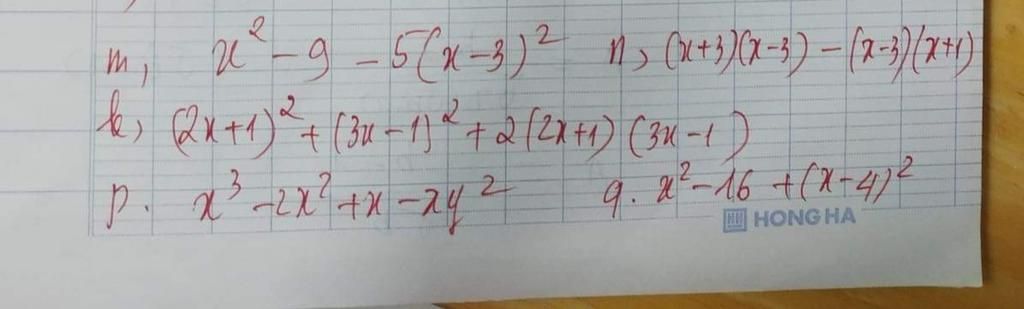 m, x² - 9 - 5(x-3)² n, (x+3)(x-3) - (x-3)(x+1)
k, (2x+1)² + (3x-1)² + 2(2x+1) (3x-1)
p. x³ - 2x² + x - xy² q. x² - 16 + (x-4)²
HH HONG HA